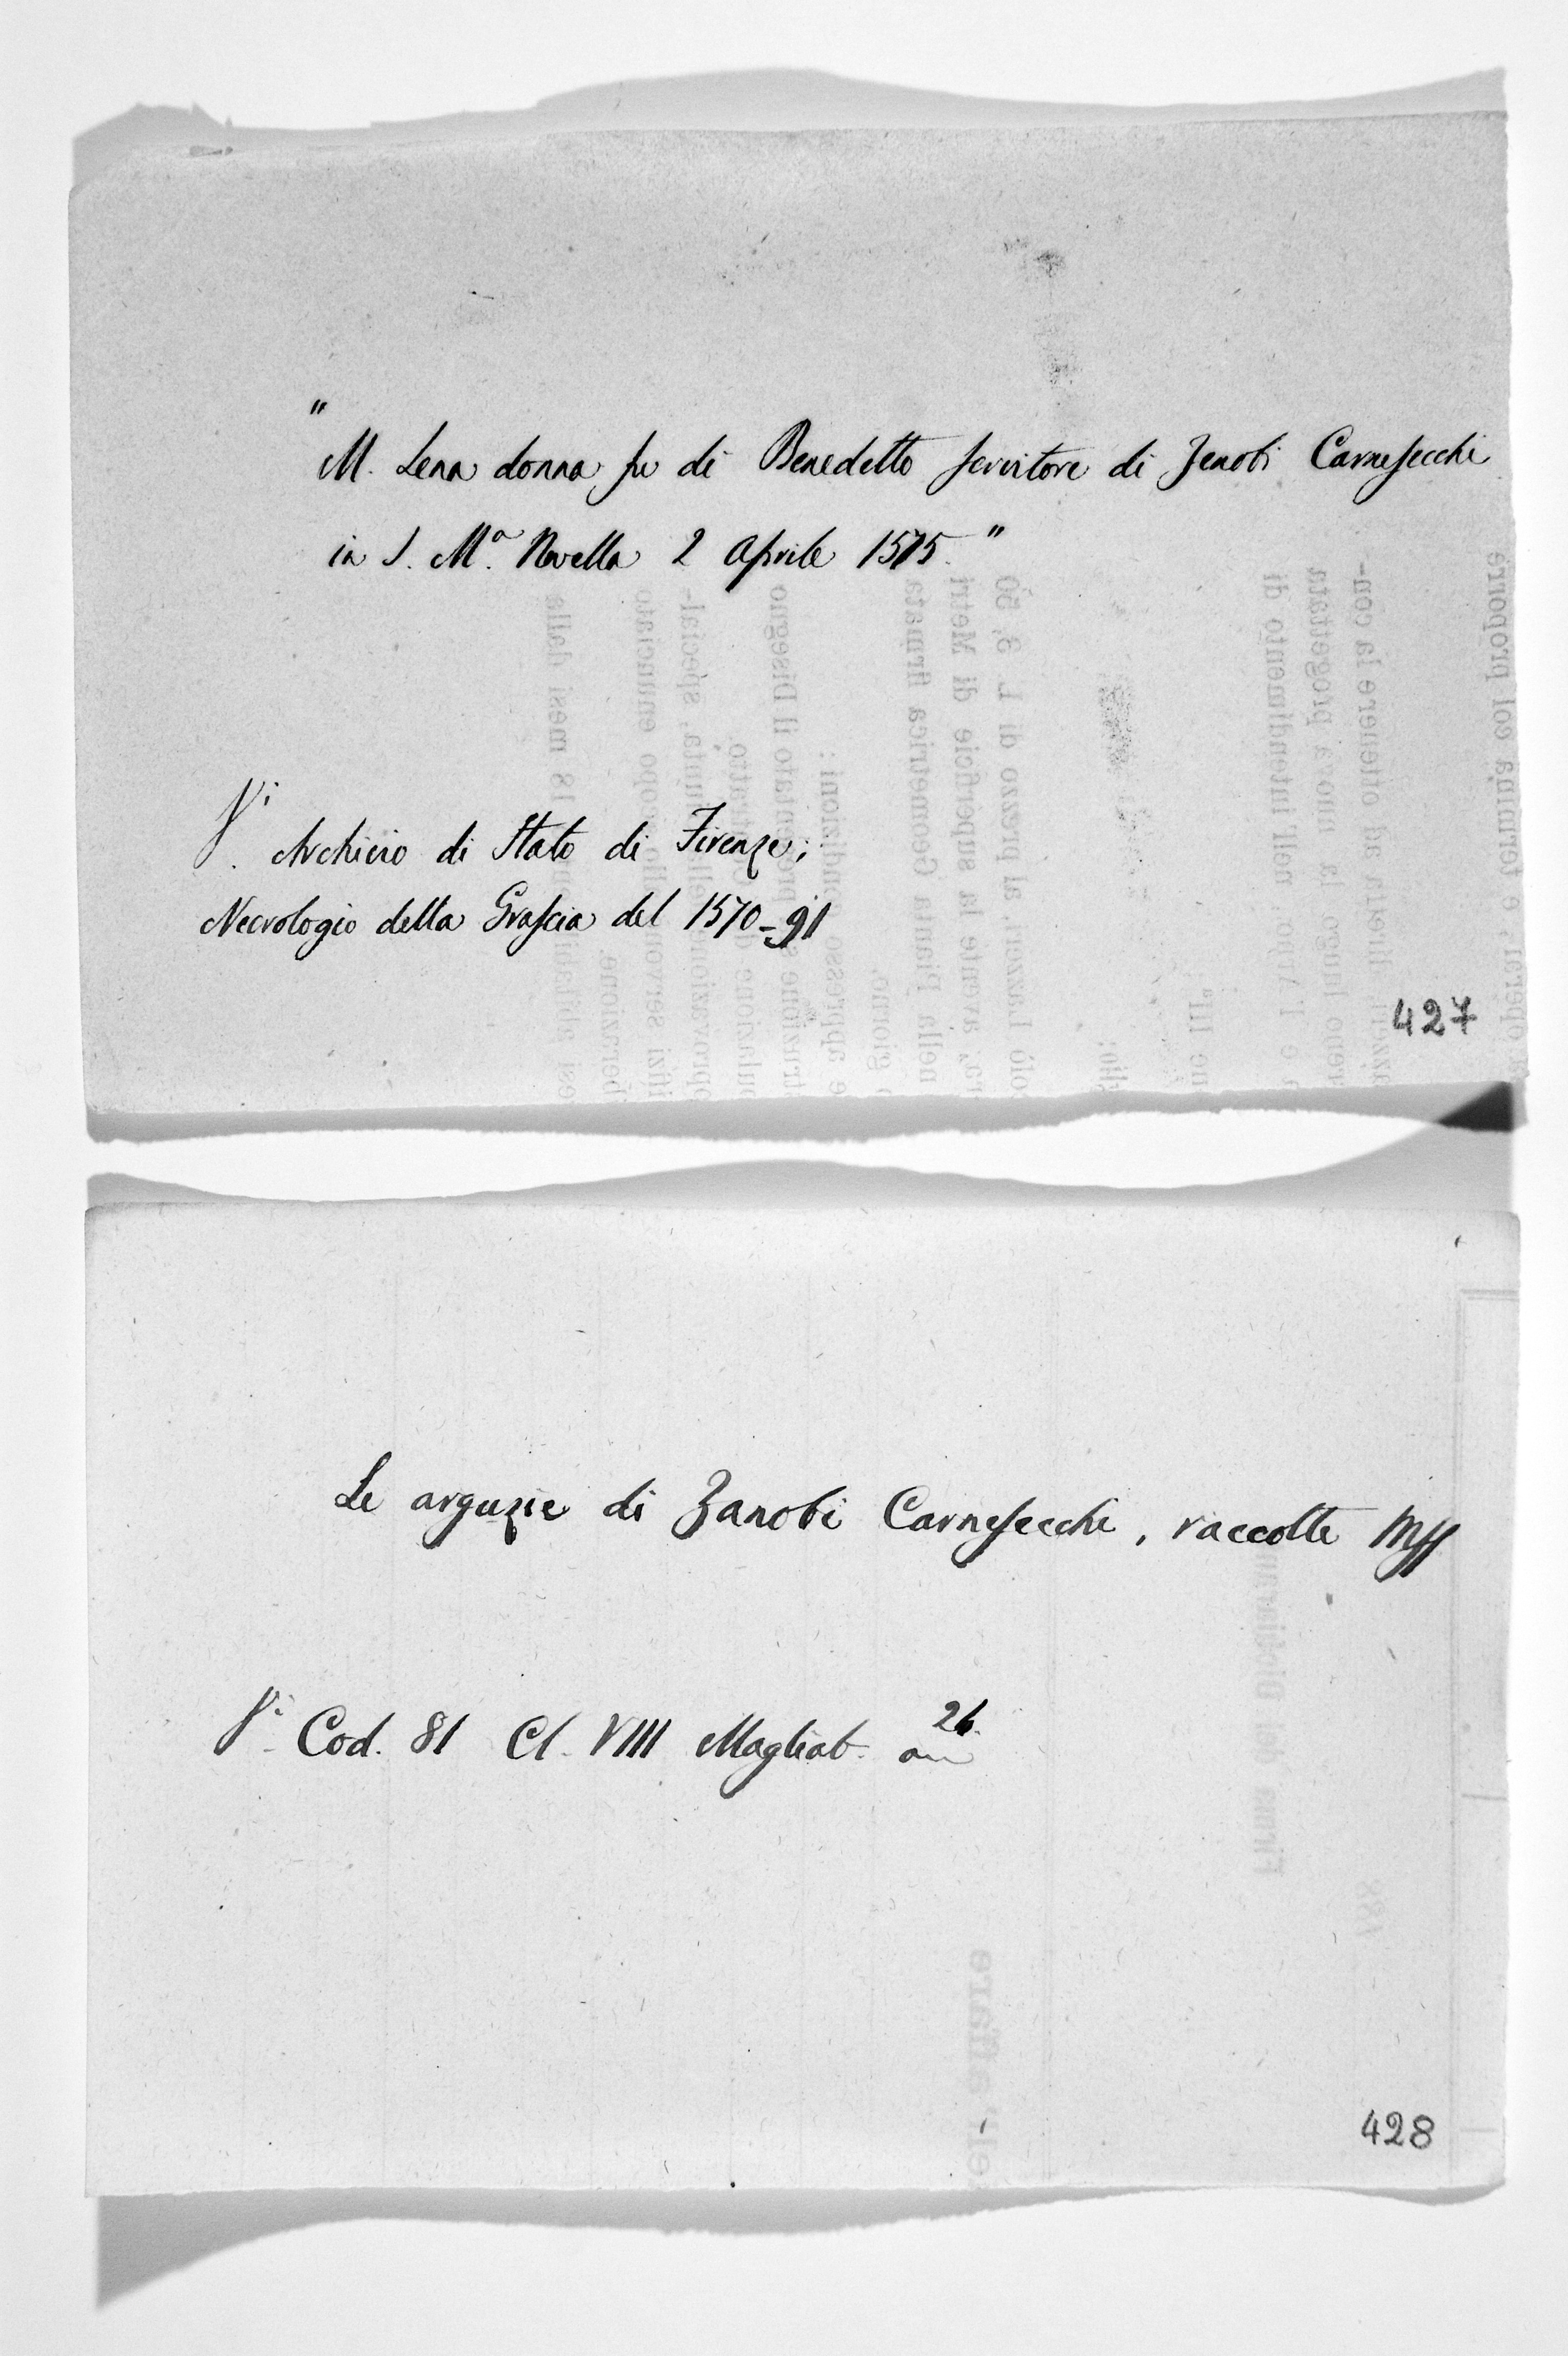 "
M. Lena donna fu di Benedetto servitore di Zenobi Carnesecchi
in S. Mª. Novella 2 Aprile 1575."
Vi. Archivio di Stato di Firenze;
Necrologio della Grascia del 1570-91
427
Le arguzie di Zanobi Carnesecchi, raccolte Mss
Vi. Cod. 81 Cl. VIII Magliab. 26.
428